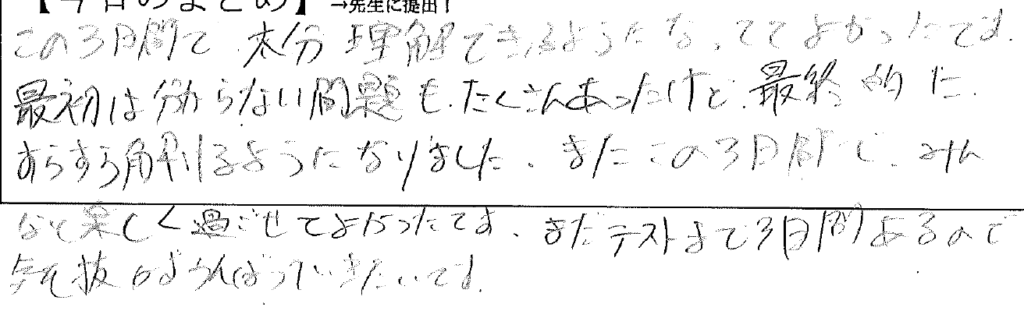 【今日のまとめ】→先生に提出！
この3日間で大分理解できるようになっててよかったです。
最初は分からない問題もたくさんあったけど、最終的に
すらすら解けるようになりました。またこの3日間で、みん
なと楽しく過ごせてよかったです。まだテストまで3日間あるので
気を抜かずがんばっていきたいです。